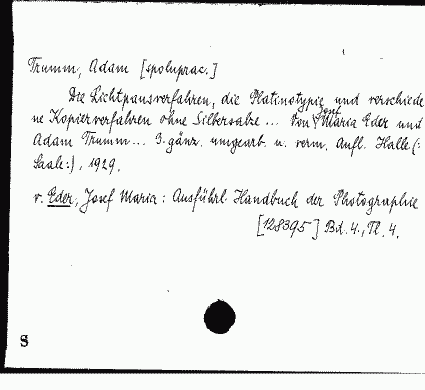 Trumm, Adam [spoluprac.]
Die Lichtpausverfahren, die Platinotypie und verschiede
ne Kopierverfahren ohne Silbersalze ... Von Josef Maria Eder und
Adam Trumm ... 3. gänz. umgearb. u. verm. Aufl. Halle (:
Saale:), 1929.
v. Eder, Josef Maria: Ausführl. Handbuch der Photographie
[128395] Bd. 4., Tl. 4.
S